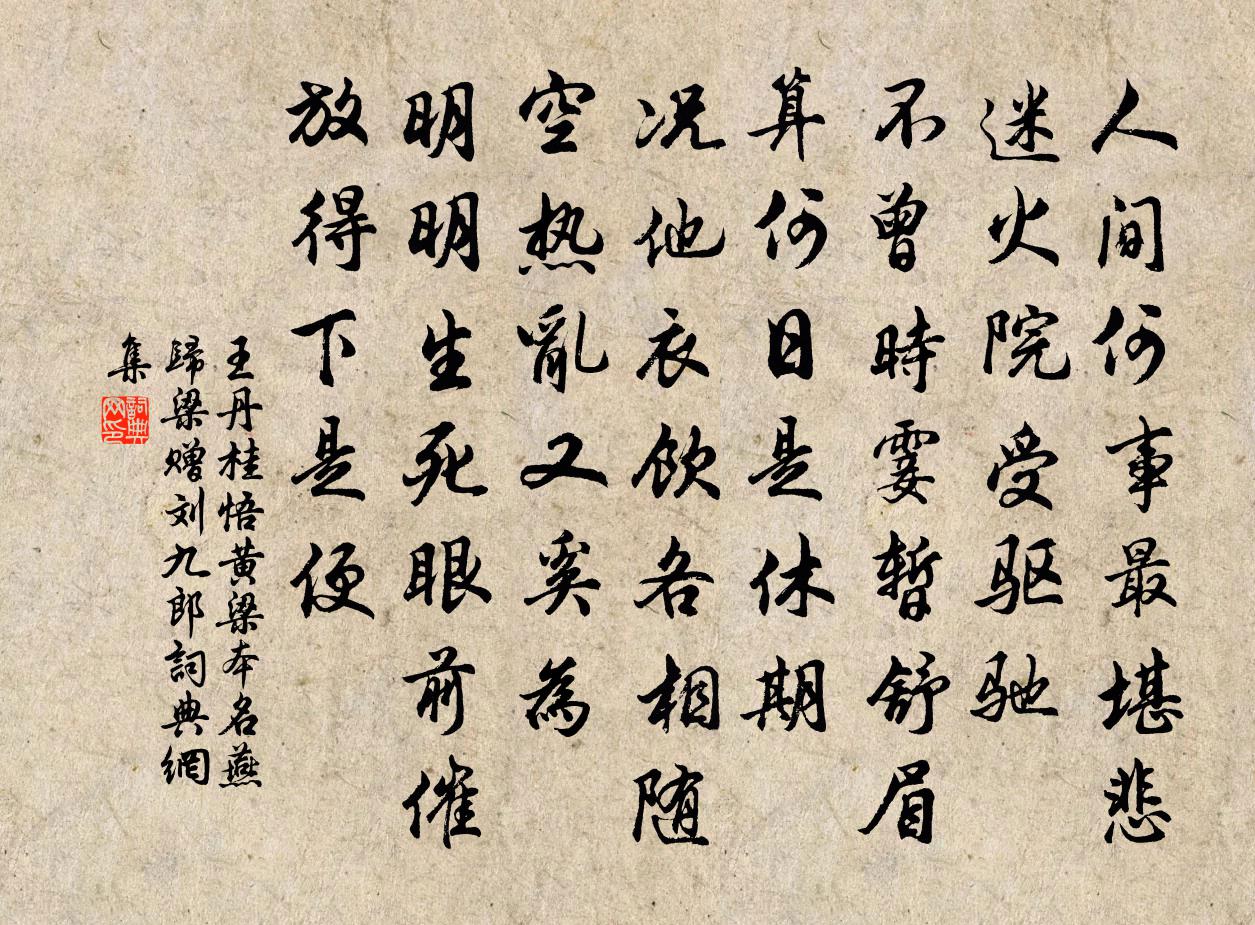 人间何事最堪悲
迷火院受驱驰
不曾時霎暫舒眉
算何日是休期
况他衣饮各相随
空热亂又奚為
明明生死眼前催
放得下是便
王丹桂悟黄梁本名燕
歸梁赠刘九郎詞典網
集
詞典
网印